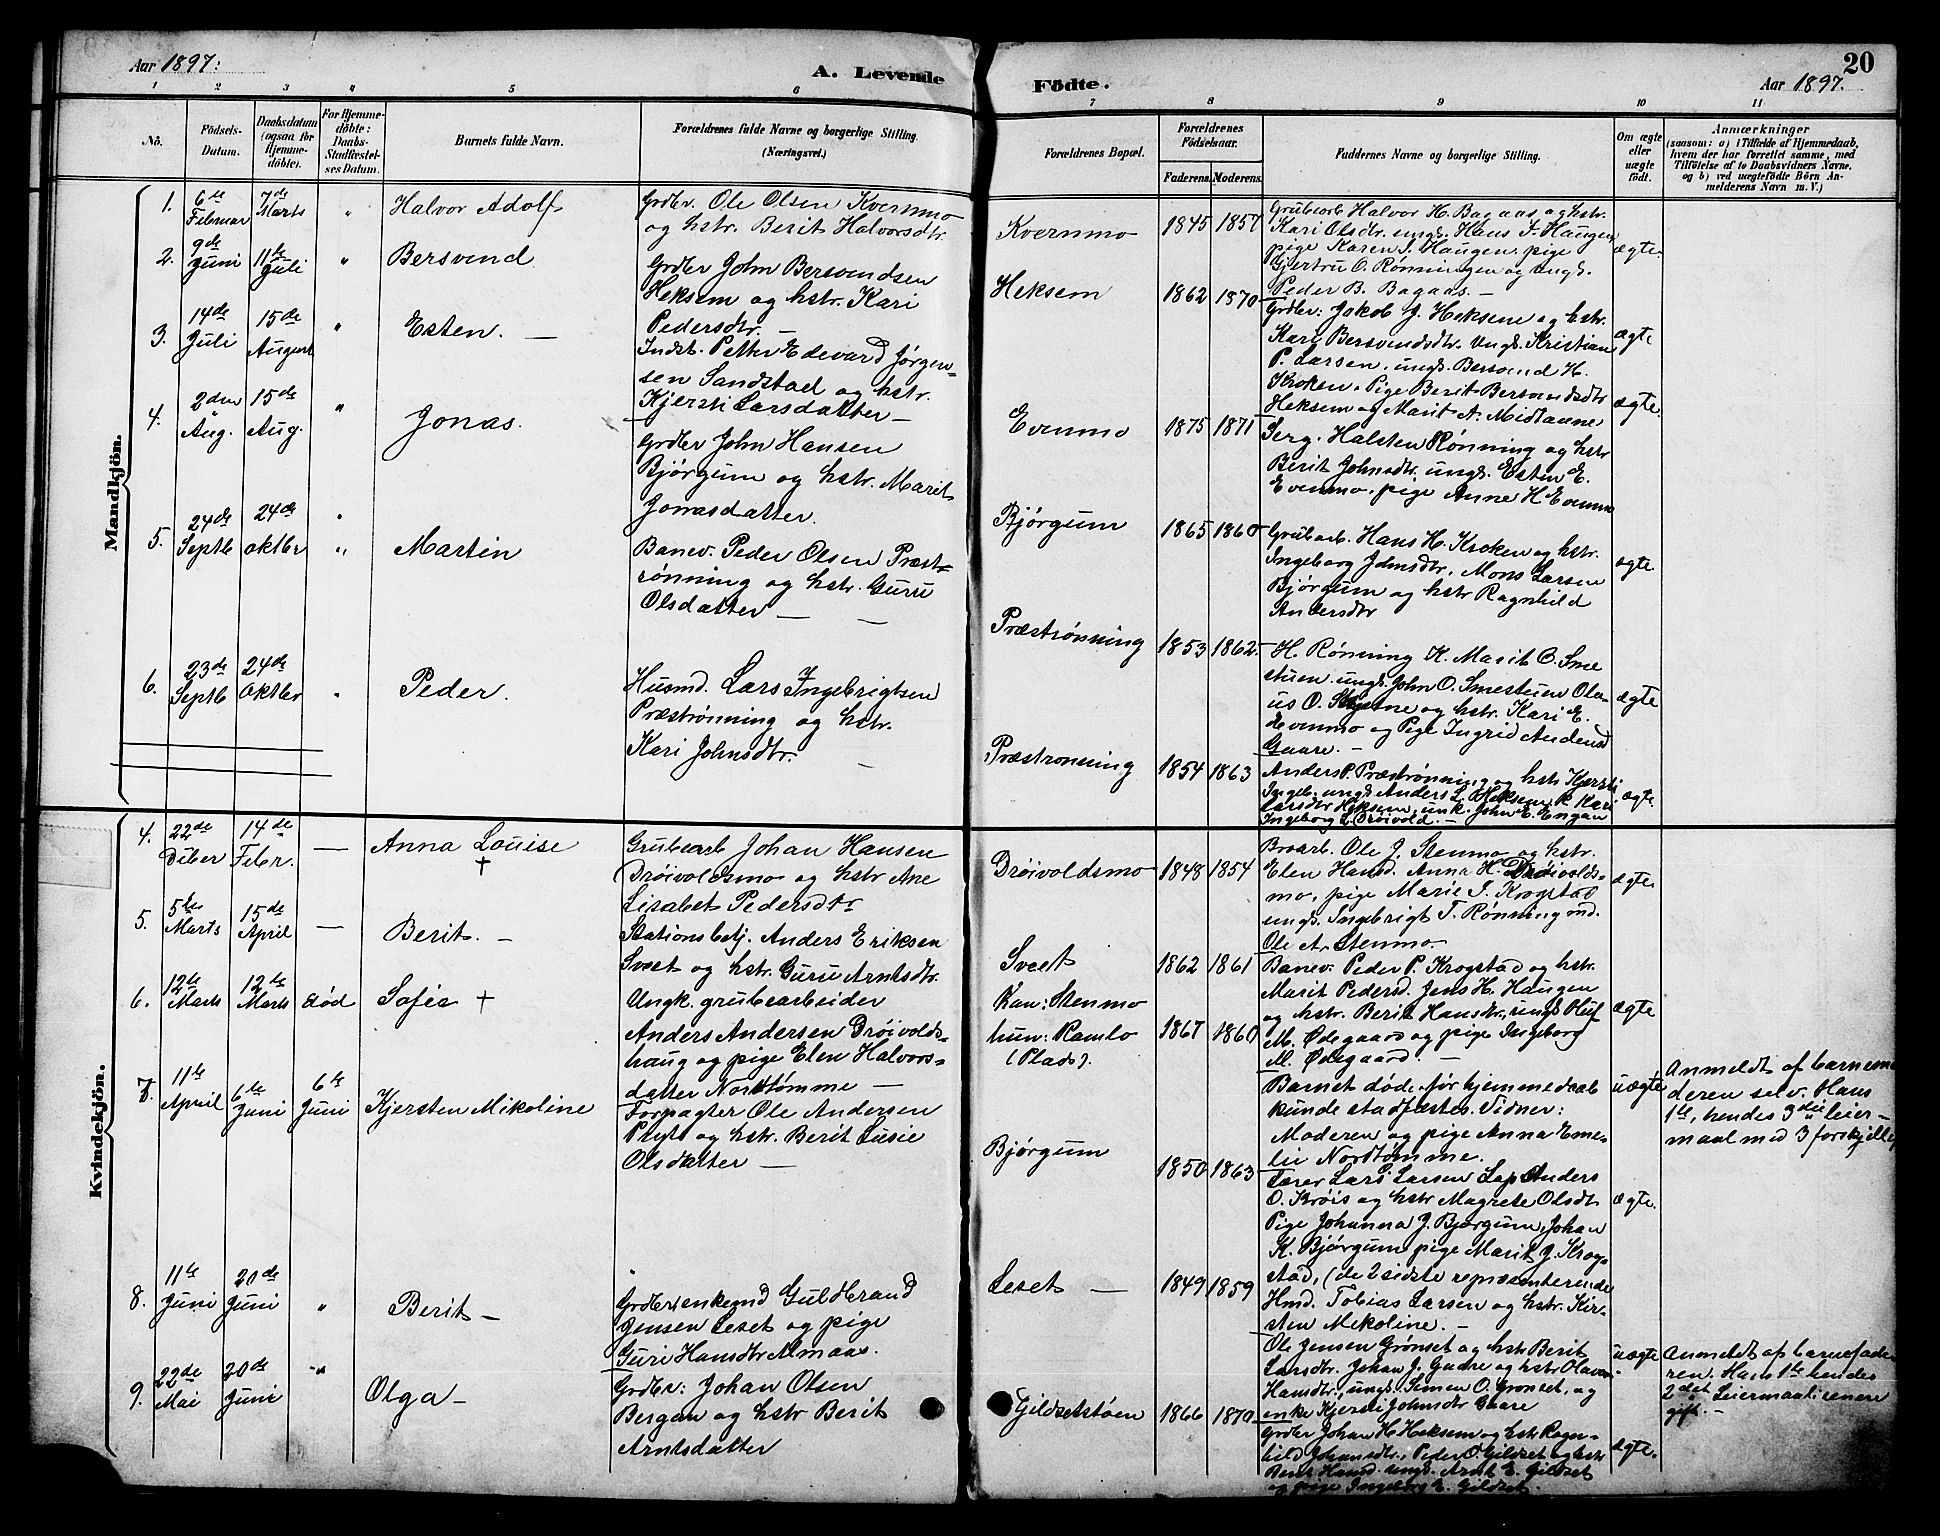 Aar 1897.
A. Levende
Födte.
Aar 1897.
20
1 2 3 4 5 6 7 8 9 10 11
Nò.
Födsels-
Datum.
Daabsdatum
(ogsaa for
Hjemme-
döbte).
For Hjemme-
döbte:
Daabs-
Stadfæstel-
ses Datum.
Barnets fulde Navn.
Forældrenes fulde Navne og borgerlige Stilling.
(Næringsvei.)
Forældrenes Bopæl.
Forældrenes
Födselsaar.
Faderens. Moderens.
Faddernes Navne og borgerlige Stilling.
Om ægte
eller
uægte
födt.
Anmærkninger
(saasom: a) i Tilfælde af Hjemmedaab,
hvem der har forrettet samme, med
Tilföielse af to Daabsvidners Navne,
og b) ved uægtefödte Börn An-
melderens Navn m. V.)
Mandkjön.
1. 6te Februar 7de Marts " Halvor Adolf
Grdbr. Ole Olsen Kvernmo
og hstr. Berit Halvorsdtr.
Kvernmo 1845 1857
Grubearb Halvor H. Bagaas og hstr.
Kari Olsdtr. ungk. Hans J. Haugen,
pige Karen J. Haugen, pige
Gjertru O. Rønningen og ungk.
Peder B. Bagaas. —
ægte.
2. 9de Juni 11te Juli " Bersvend
Grdbr John Bersvendsen
Heksem og hstr. Kari
Pedersdtr. —
Heksem 1862 1870
Grdbr: Jakob J. Heksem og hstr.
Kari Bersvendsdtr. Ungk. Kristian
P. Larsen, ungk. Bersvend H.
Kroken, Pige Berit Bersvendsdtr
Heksem og Marit A. Midtaune
ægte
3. 14de Juli 15de August " Esten. —
Indst. Petter Edevard Jørgen-
sen Sandstad og hstr.
Kjersti Larsdatter —
Evenmo 1875 1871
Serg. Halsten Rønning og hstr
Berit Johnsdtr. ungk. Esten E.
Evenmo, pige Anne H Evenmo
ægte.
4. 2den Aug. 15de Aug. " Jonas.
Grdbr John Hansen
Bjørgum og hstr. Marit
Jonasdatter.
Bjørgum 1865 1860
Grubarb. Hans H. Kroken og hstr.
Ingeborg Johnsdtr, Mons Larsen
Bjørgum og hstr Ragnhild
Andersdtr
ægte
5. 24de Septb 24de Oktbr " Martin
Banev. Peder Olsen Præst-
rønning og hstr. Guru
Olsdatter — —
Præstrønning 1853 1862.
H. Rønning K. Marit O. Sme
stuen. ungk. John O. Smestuen Ola-
us O. og hstr. Kari E.
Evenmo og Pige Ingrid
Gaare. —
ægte
6. 23de Septb 24de Oktbr " Peder.
Husmd. Lars Ingebrigtsen
Præstrønning og hstr.
Kari Johnsdtr. —
Præstrønning 1854 1863
Anders P. Præstrønning og hstr Kjersti
Ingeb. ungk Anders L. Heksem, P. Kari
Larsdtr Heksem, unk. John E. Engan
Ingeborg L. Drøivold. —
ægte
Kvindekjön.
4. 22de Dcber 14de Febr. — Anna Louise †
Grubearb Johan Hansen
Drøivoldsmo og hstr Ane
Lisabet Pedersdtr
Drøivoldsmo 1848 1854
Broarb. Ole J. Stenmo og hstr.
Elen Hansd. Anna H. Drøivolds-
mo, pige Marie J. Krogstad
ungk. Ingebrigt T. Rønning ond.
Ole A. Stenmo —
ægte.
5. 5te Marts 15de April — Berit. —
Stationsbetj. Anders Eriksen
Sveet og hstr. Guru Arntsdtr.
Sveet 1862 1861
Banev. Peder P. Krogstad og hstr.
Marit Pedersd. Jens H. Haugen
og hstr. Berit Hansdtr, ungk
M. Ødegaard og pige Ingeborg
M. Ødegaard —
ægte
6. 12te Marts 12te Marts død Sofia †
Ungk. grubearbeider
Anders Andersen Drøivolds-
haug og pige Elen Halvors-
datter Nordtømme —
Han: Stenmo
hun: Ramlo
(Plads). 1867 1860
Barnet døde før hjemmedaab
kunde stadfæstes. Vidner:
Moderen og pige Anna Eme-
lie Nordtømme.
uægte
Anmeldt af barnemo
deren selv. Hans
1te, hendes 3die leier-
maal med 3 forskjellig
7. 11te April 6te Juni 6te Juni Kjersten Mikoline
Forpagter Ole Andersen
Plyt og hstr. Berit Lusie
Olsdatter —
Bjørgum 1850 1863
Lærer Lars Larsen Anders
O. Krøis og hstr Magrete Olsdtr
Pige Johanna J. Bjørgum, Johan
K. Bjørgum pige Marit J. Krog-
stad, (de 2 sidste repræsenterende
Hmd. Tobias Larsen og hstr. Kir-
sten Mekoline. —
ægte.
8. 11te Juni 20de Juni " Berit —
Grdbr enkemd Guldbrand
Jensen Leset og pige
Guri Hansdtr Almaas.
Leset — 1849 1859
Ole Jensen Grønset og hstr Berit
Larsdtr, Johan J. Gaare og hstr
Hansdtr, ungk. Simen O. Grønset, og
enke Kjersti Johnsdtr Gaare
uægte
Anmeldt af barnefade
ren. Hans 1te hendes
2det Leiermaal senere
gift. —
9. 22de Mai 20de Juni " Olga —
Grdbr: Johan Olsen
Bergan og hstr Berit
Arntsdatter
Gjildsetstøen 1866 1870
Grdbr Johan H Heksem og hstr Ragn-
hild Johansdtr, Peder O Gildset og hstr
Berit Hansd. ungk. Arnt E. Gildset
og pige Ingebor E. Gildset.
ægte.